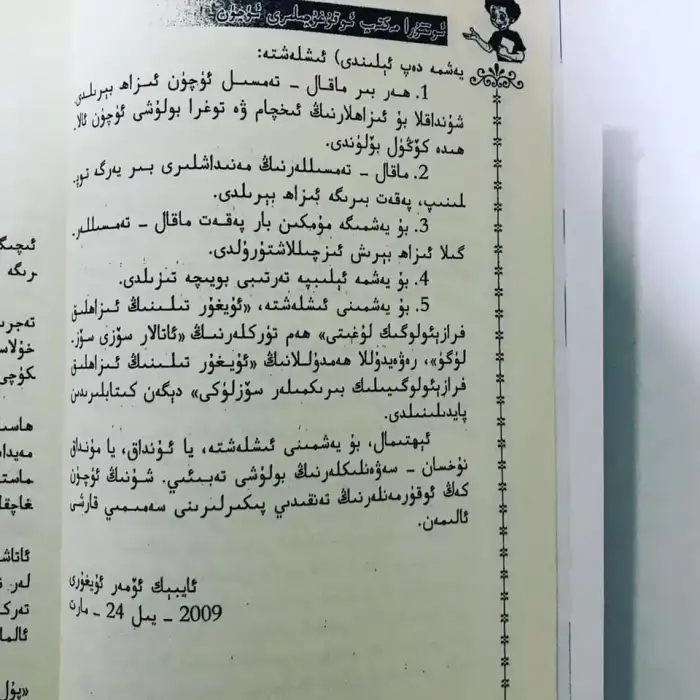 ئوتتۇرا مەكتەپ ئوقۇغۇچىلىرى ئۈچۈن
يەشمە دەپ ئېلىندى) ئىشلەشتە:
1. ھەر بىر ماقال – تەمسىل ئۈچۈن ئىزاھ بېرىلدى.
شۇنداقلا بۇ ئىزاھلارنىڭ ئىخچام ۋە توغرا بولۇشى ئۈچۈن ئالا-
ھىدە كۆڭۈل بۆلۈندى.
2. ماقال – تەمسىللەرنىڭ مەنىداشلىرى بىر يەرگە توپ-
لىنىپ، پەقەت بىرىگە ئىزاھ بېرىلدى.
3. بۇ يەشمىگە مۇمكىن بار پەقەت ماقال – تەمسىللەر-
گىلا ئىزاھ بېرىش ئىزچىللاشتۇرۇلدى.
4. بۇ يەشمە ئېلىپبە تەرتىپى بويىچە تىزىلدى.
5. بۇ يەشمىنى ئىشلەشتە، «ئۇيغۇر تىلىنىڭ ئىزاھلىق
فرازېئولوگىك لۇغىتى» ھەم تۈركلەرنىڭ «ئاتالار سۆزى سۆز-
لۈگۈ»، رەۋەيدۇللا ھەمدۇللانىڭ «ئۇيغۇر تىلىنىڭ ئىزاھلىق
فرازېئولوگىيىلىك بىرىكمىلەر سۆزلۈكى» دېگەن كىتابلىرىدىن
پايدىلىنىلدى.
ئېھتىمال، بۇ يەشمىنى ئىشلەشتە، يا ئۇنداق، يا مۇنداق
نۇخسان – سەۋەنلىكلەرنىڭ بولۇشى تەبىئىي. شۇنىڭ ئۈچۈن
كەڭ ئوقۇرمەنلەرنىڭ تەنقىدىي پىكىرلىرىنى سەمىمىي قارشى
ئالىمەن.
ئايبېك ئۆمەر ئۇيغۇرى
2009 – يىل 24 – مارت